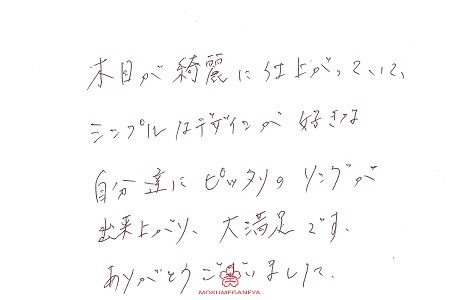 木目が綺麗に仕上がっていて、
シンプルなデザインが好きな
自分達にピッタリのリングが
出来上がり、大満足です。
ありがとうございました。
MOKUMEGANEYA